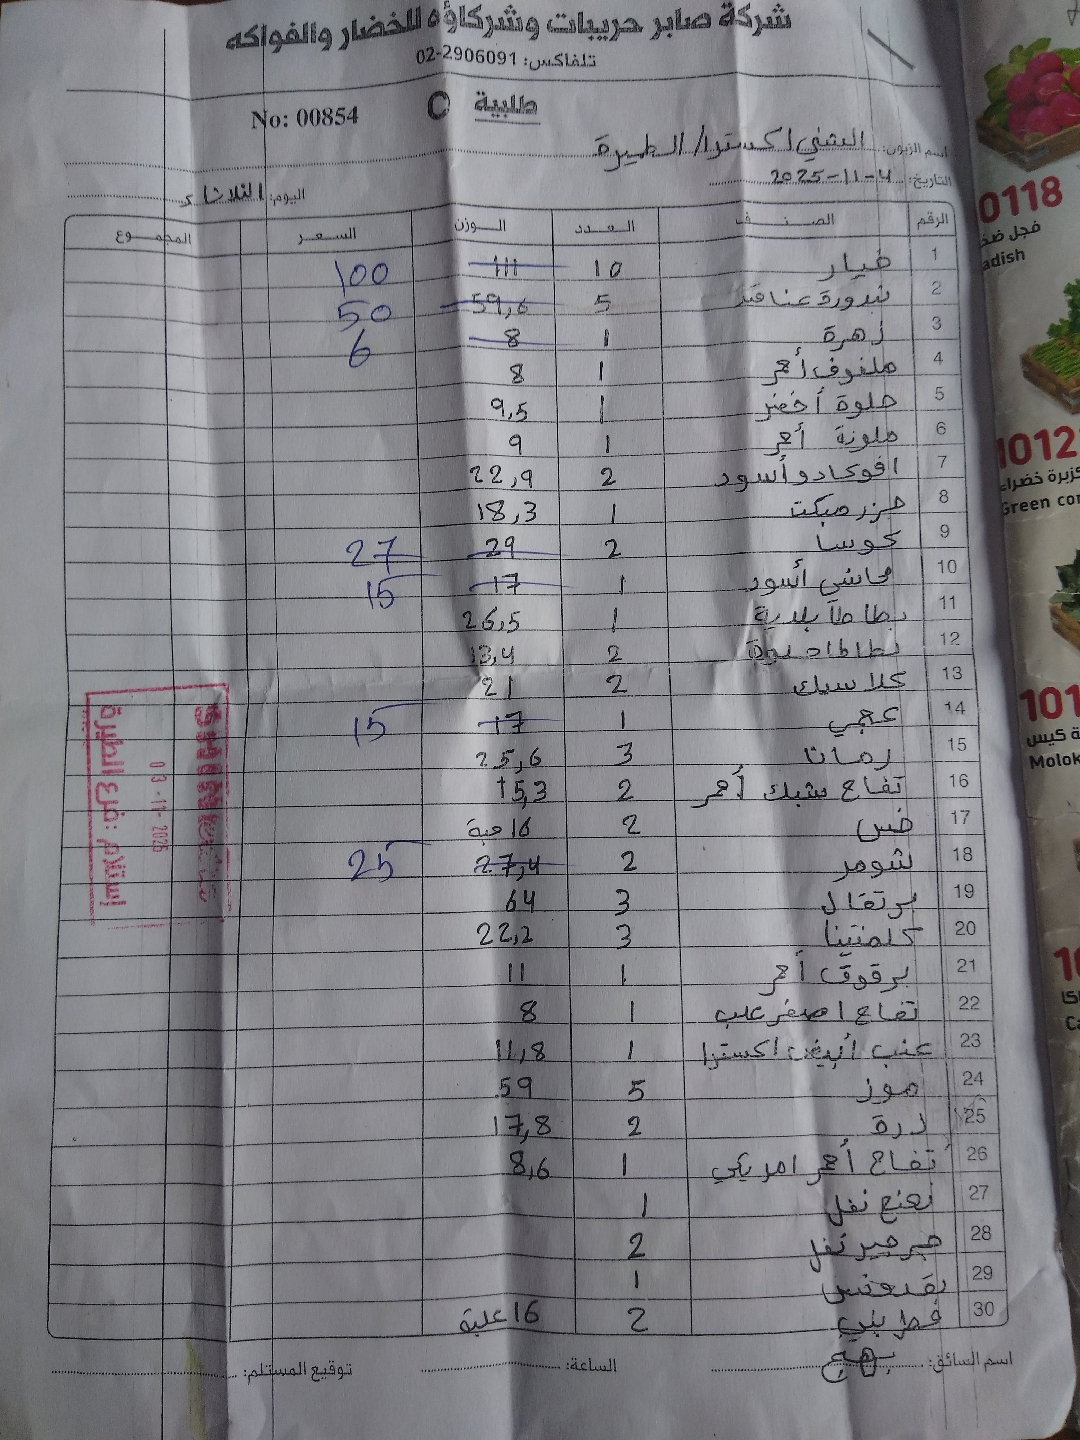 شركة صابر حريبات وشركاؤه للخضار والفواكه
تلفاكس: 02-2906091
No: 00854 C طلبية
اسم الزبون: الشني اكسترا/ الطيرة
التاريخ: 4-11-2025 اليوم: الثلاثاء
الرقم الصنف العدد الوزن السعر المجموع
1 خيار 10 111 100
2 بندورة عناقد 5 59,6 50
3 زهرة 1 8 6
4 ملفوف أحمر 1 8
5 حلوة أخضر 1 9,5
6 ملونة أحمر 1 9
7 افوكادو أسود 2 22,9
8 جزر مبكت 1 18,3
9 كوسا 2 29 27
10 محاشي أسود 1 17 15
11 بطاطا بلدية 1 26,5
12 بطاطا حلوة 2 13,4
13 كلاسيك 2 21
14 عجمي 1 17 15
15 رمانا 3 25,6
16 تفاح شبك أحمر 2 15,3
17 خس 2 16 حبة
18 شومر 2 27,4 25
19 برتقال 3 64
20 كلمنتينا 3 22,2
21 برقوق أحمر 1 11
22 تفاح اصفر علب 1 8
23 عنب أبيض اكسترا 1 11,8
24 موز 5 59
25 ذرة 2 17,8
26 تفاح أحمر امريكي 1 8,6
27 نعنع نفل 1
28 جرجير نفل 2
29 بقدونس 1
30 فطر بني 2 16 علبة
اسم السائق: بهيج الساعة: توقيع المستلم:
03-11-2025
إستلام : فرع الطيرة
0118
فجل
adish
1012
كزبرة خضراء
Green cor
101
كيس
Molok